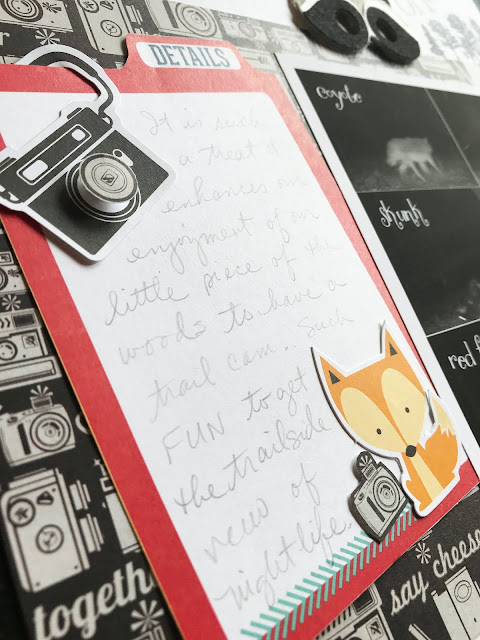 DETAILS
It is such
a treat &
enhances our
enjoyment of our
little piece of the
woods to have a
trail cam.. Such
FUN to get
the trailside
view of
nightlife.
coyote
skunk
red f
together
say cheese